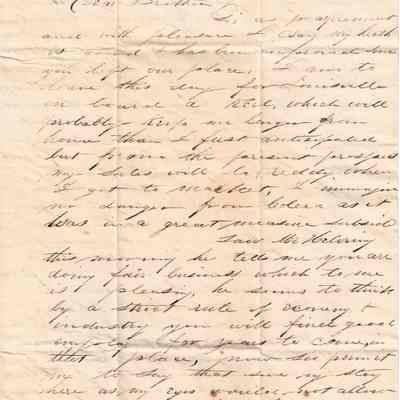 Dear Brother
Sir as per agreement
and with pleasure I say my health
is good & has been
you left our place, I am to
leave this day for
on board a Keel, which will
probably keep me longer from
home than I first anticipated
but from the present prospect
my Sales will be reddy when
I get to market, I
no danger from Colera as it
has in a great measure subsid
Saw Mr
this morning he tells me you are
doing fair business which to me
is pleasing, he seems to think
by a strict rule of economy &
industry you will find good
employ for years to come in
that place, now Sir permit
me to say that since my stay
here as my eyes would not allow